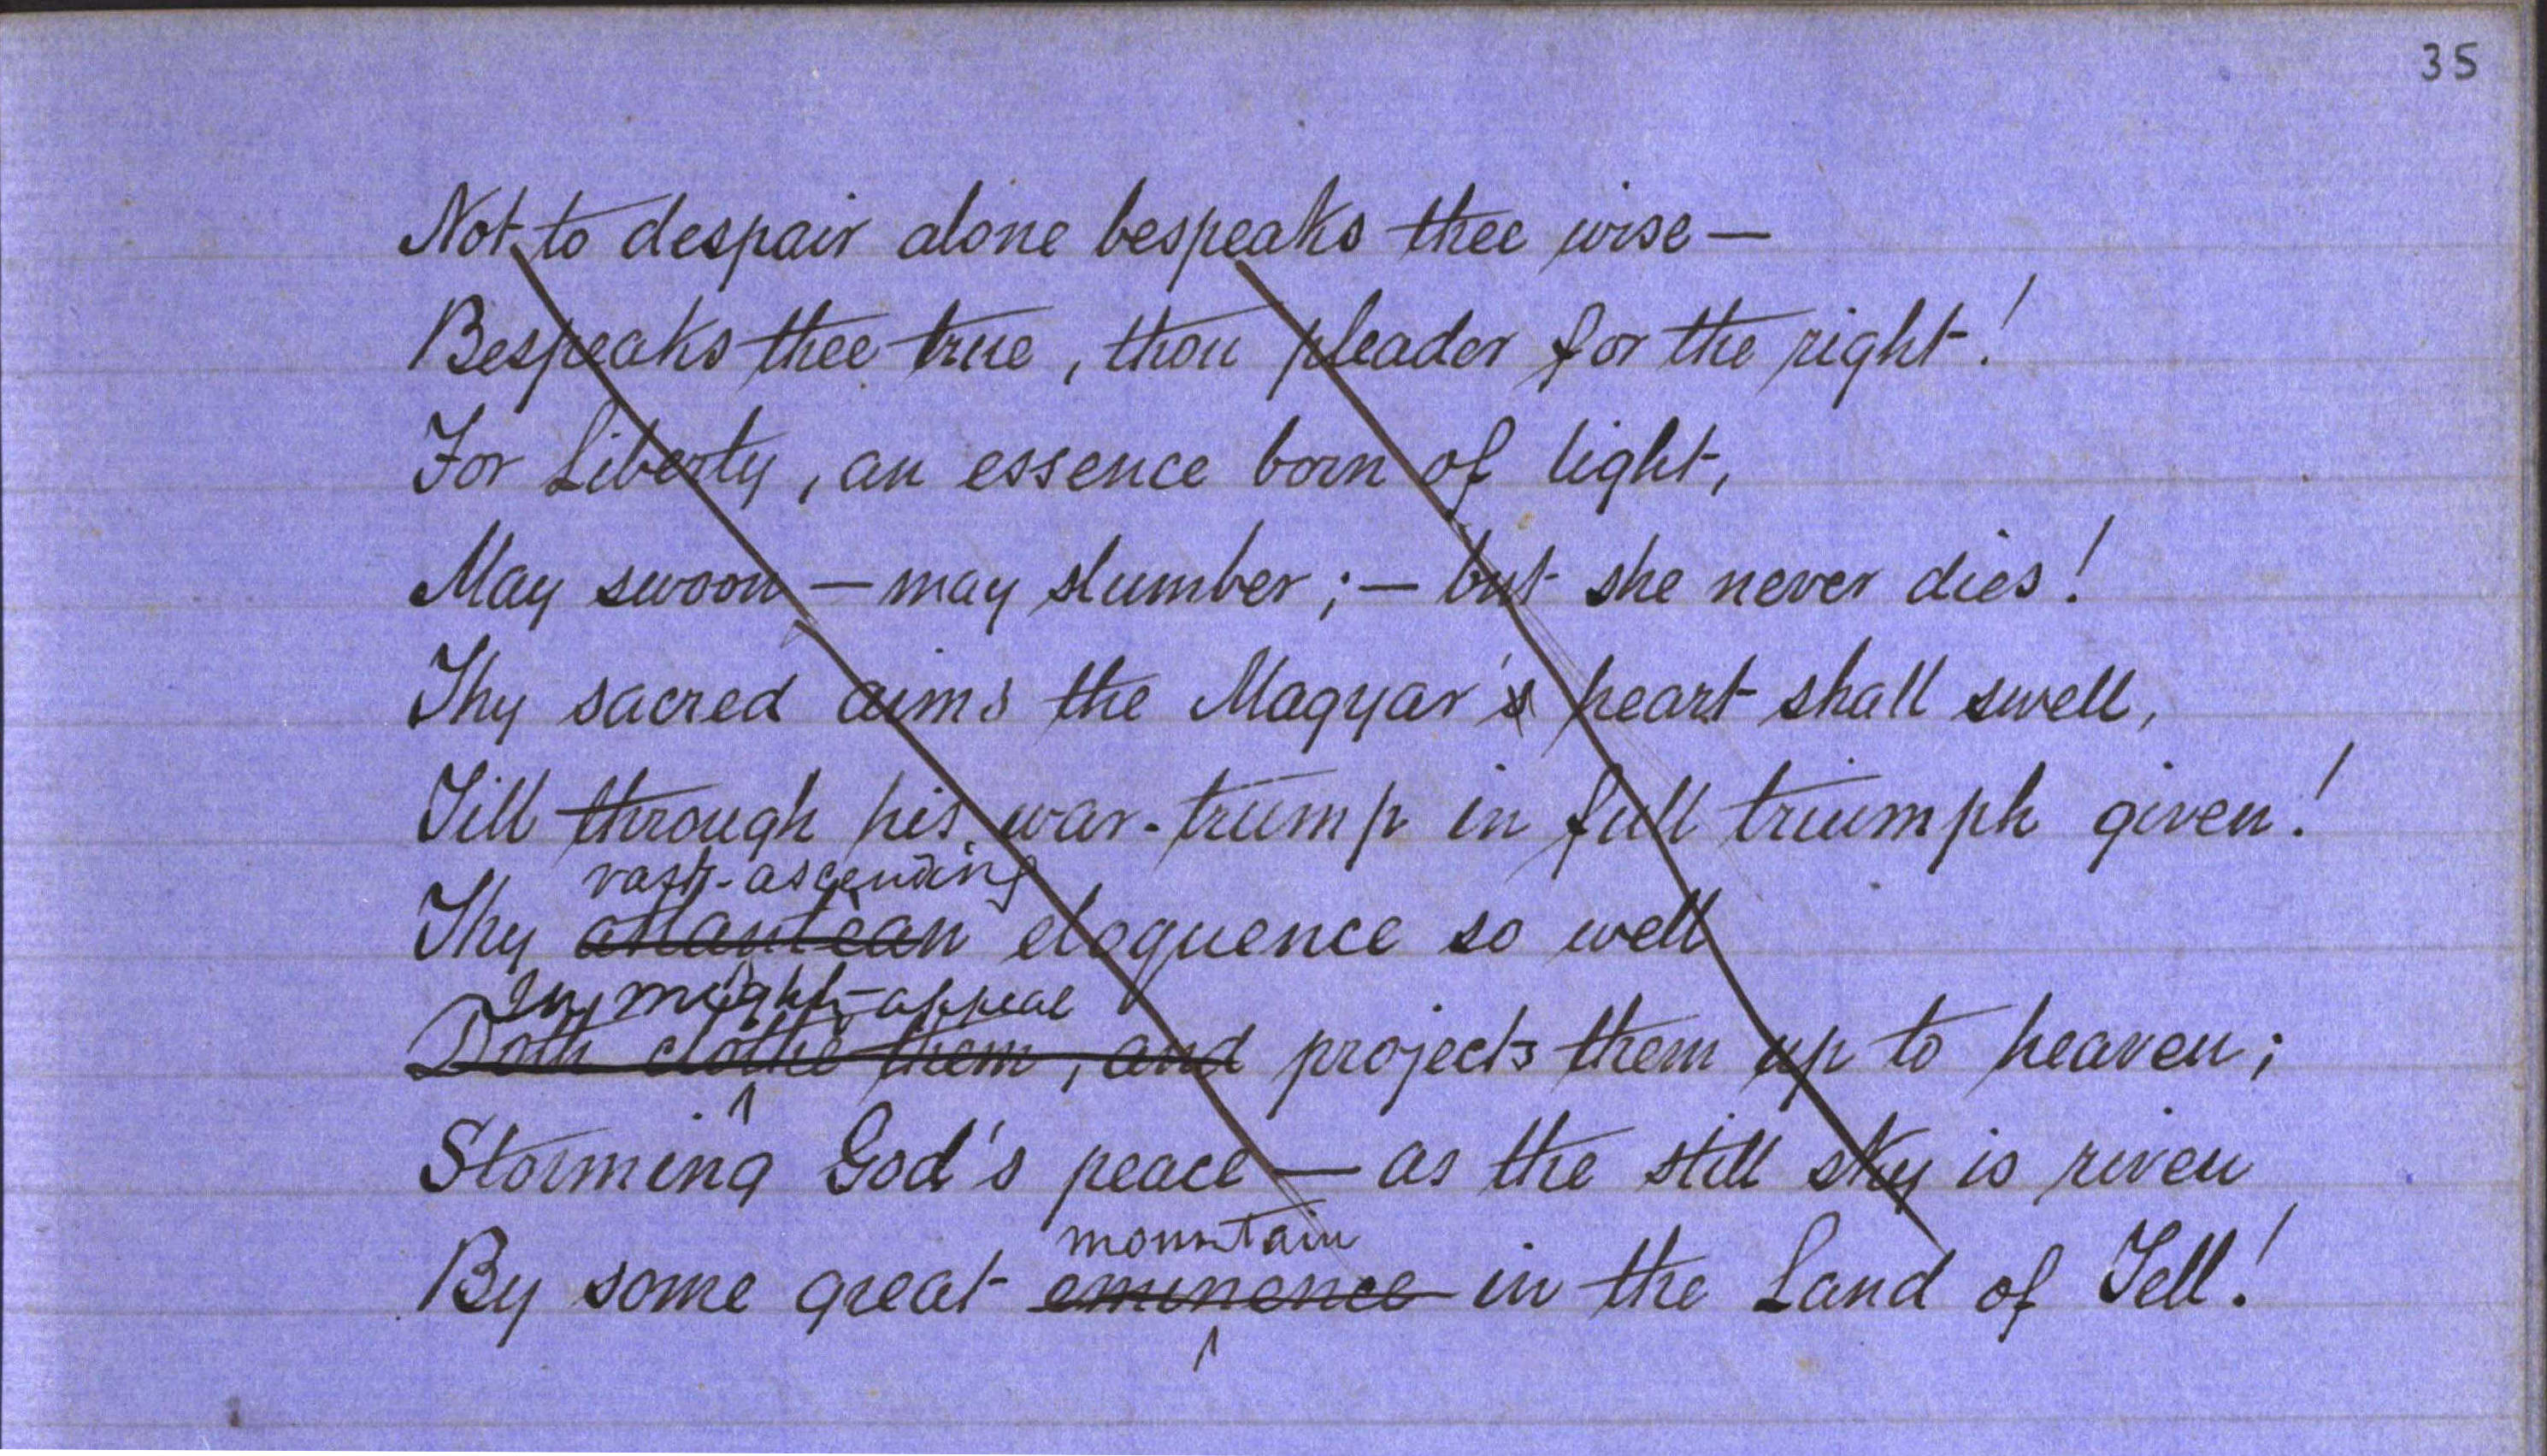 35
Not to despair alone bespeaks thee wise —
Bespeaks thee true, thou pleader for the right!
For Liberty, an essence born of light,
May swoon — may slumber; — but she never dies!
Thy sacred aims the Magyar's heart shall swell,
Till through his war-trump in full triumph given!
vast-ascending
Thy atlantean eloquence so well
In mighty appeal
Doth clothe them, and projects them up to heaven;
Storming God's peace — as the still sky is riven
mountain
By some great eminence in the Land of Tell!